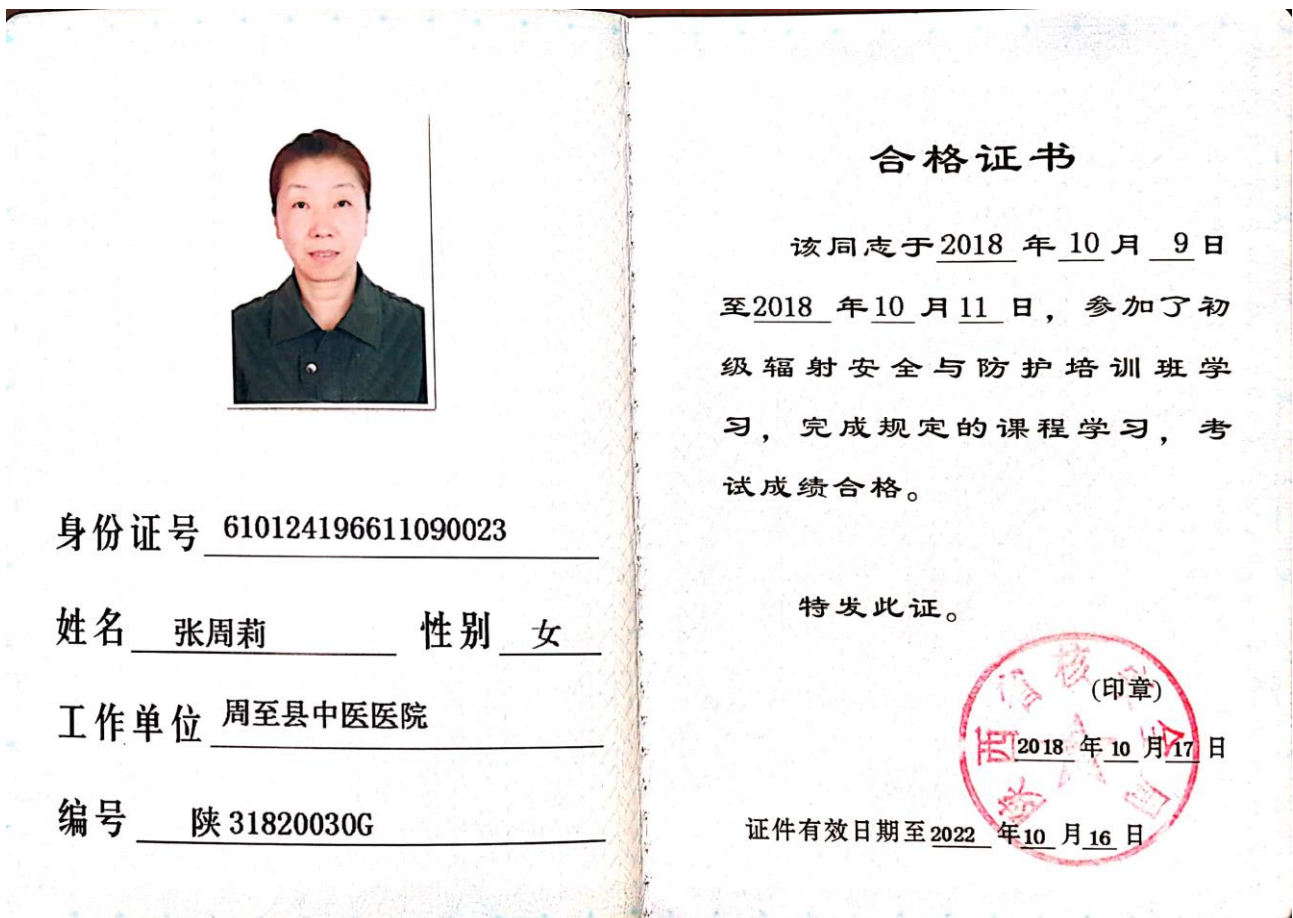 身份证号 610124196611090023
姓名 张周莉 性别 女
工作单位 周至县中医医院
编号 陕 31820030G
合格证书
该同志于 2018 年 10 月 9 日
至 2018 年 10 月 11 日，参加了初
级辐射安全与防护培训班学
习，完成规定的课程学习，考
试成绩合格。
特发此证。
(印章)
2018 年 10 月 17 日
证件有效日期至 2022 年 10 月 16 日
陕西省核安全局